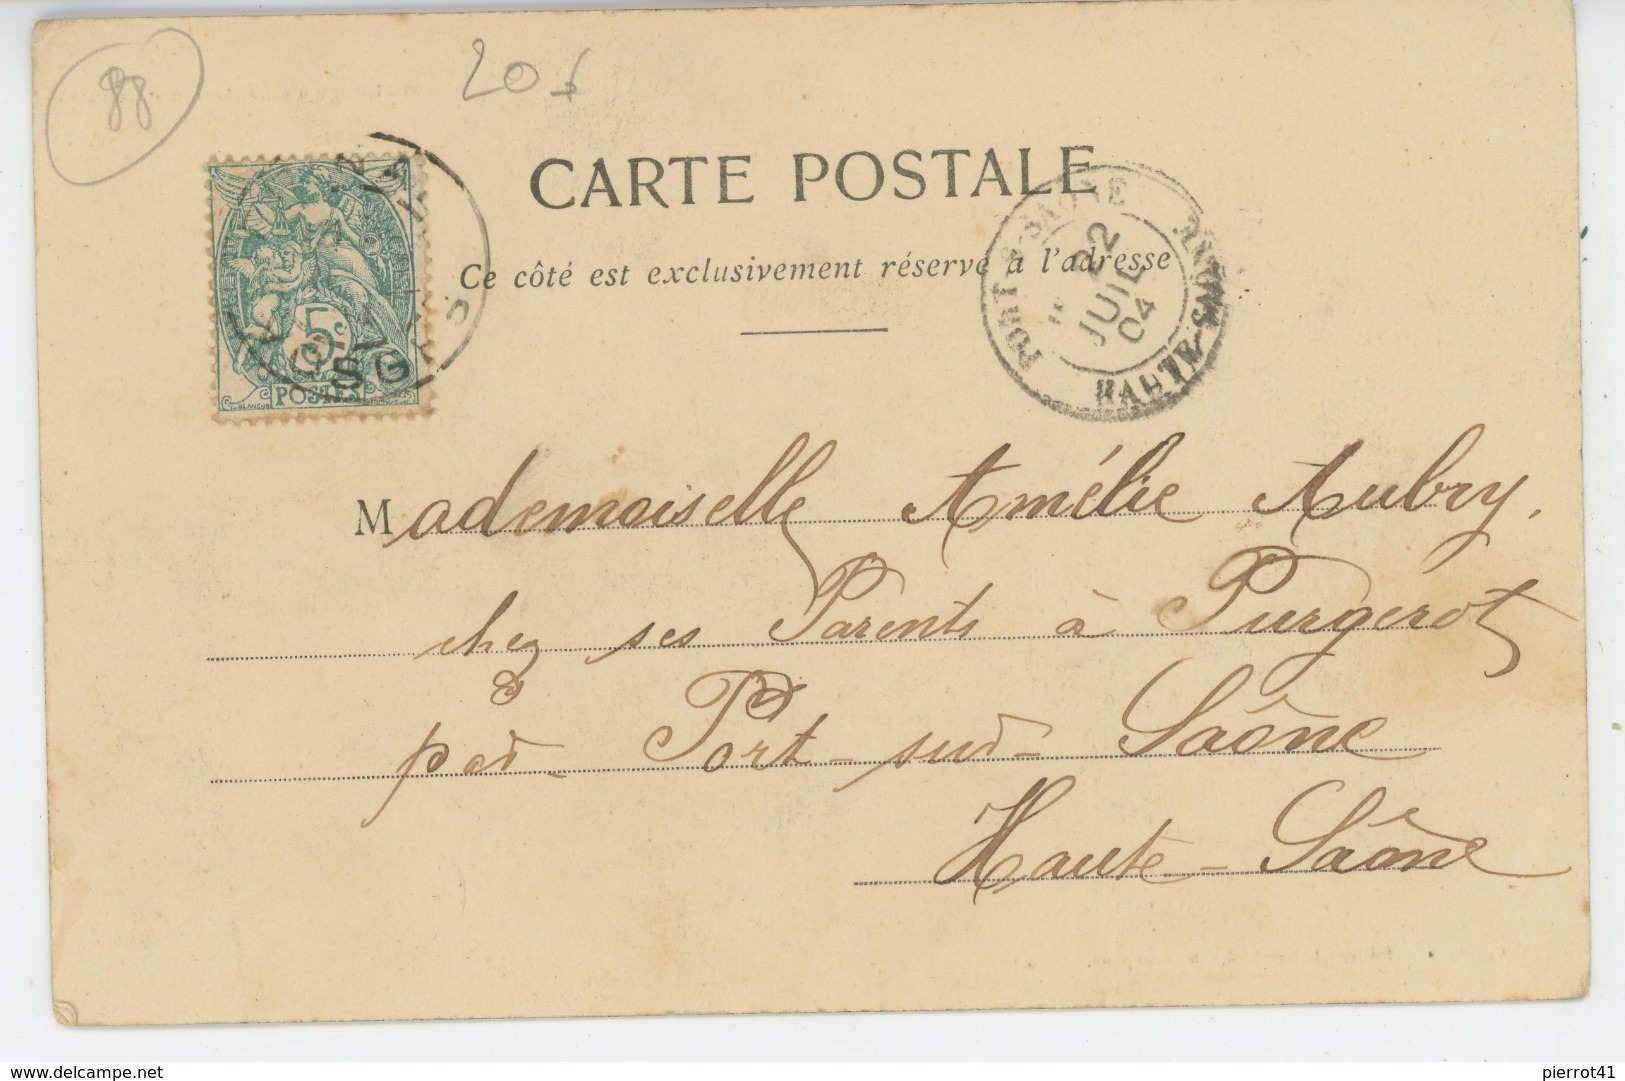 88
20f
CARTE POSTALE
Ce côté est exclusivement réservé à l'adresse
5c
POSTES
PORT-S-SAONE
22
JUIL
04
HAUTE-SAONE
Mademoiselle Amélie Aubry,
chez ses Parents à Purgerot
par Port-sur-Saône
Haute-Saône
www.delcampe.net
pierrot41